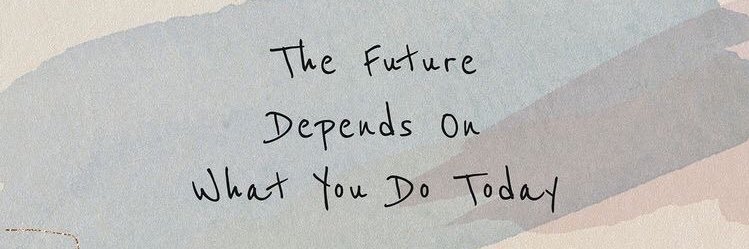 The Future
Depends On
What You Do Today